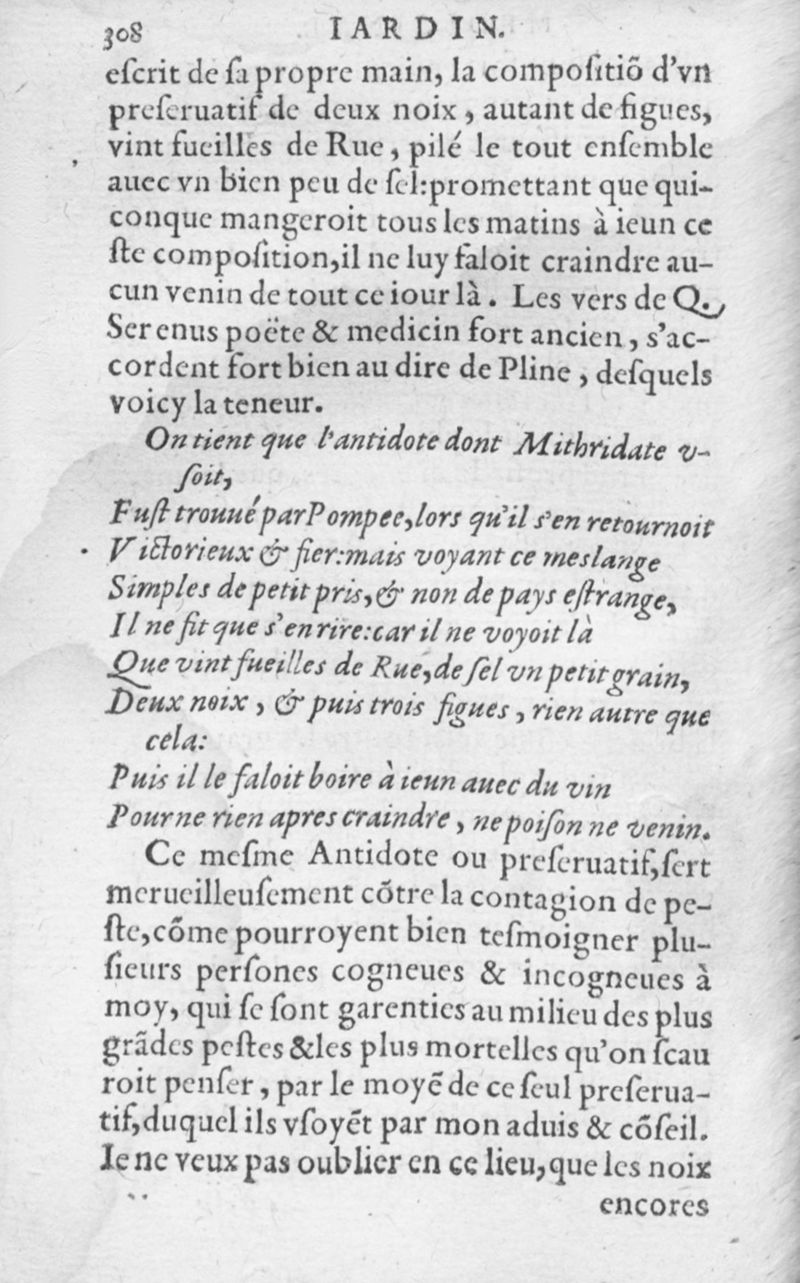 308 IARDIN.
eſcrit de ſa propre main, la compoſitiõ d'vn
preſeruatif de deux noix, autant de figues,
vint fueilles de Rue, pilé le tout enſemble
auec vn bien peu de ſel:promettant que qui-
conque mangeroit tous les matins à ieun ce
ſte compoſition,il ne luy faloit craindre au-
cun venin de tout ce iour là. Les vers de Q.
Serenus poëte & medicin fort ancien, s'ac-
cordent fort bien au dire de Pline, deſquels
voicy la teneur.
On tient que l'antidote dont Mithridate v-
ſoit,
Fuſt trouué par Pompee,lors qu'il s'en retournoit
Victorieux & fier:mais voyant ce meslange
Simples de petit pris,& non de pays eſtrange,
Il ne fit que s'en rire:car il ne voyoit là
Que vint fueilles de Rue,de ſel vn petit grain,
Deux noix, & puis trois figues, rien autre que
cela:
Puis il le faloit boire à ieun auec du vin
Pour ne rien apres craindre, ne poiſon ne venin.
Ce meſme Antidote ou preſeruatif,ſert
merueilleuſement cõtre la contagion de pe-
ſte,cõme pourroyent bien teſmoigner plu-
ſieurs perſones cogneues & incogneues à
moy, qui ſe ſont garenties au milieu des plus
grãdes peſtes &les plus mortelles qu'on ſcau
roit penſer, par le moyẽ de ce ſeul preſerua-
tif,duquel ils vſoyẽt par mon aduis & cõſeil.
Ie ne veux pas oublier en ce lieu,que les noix
encores